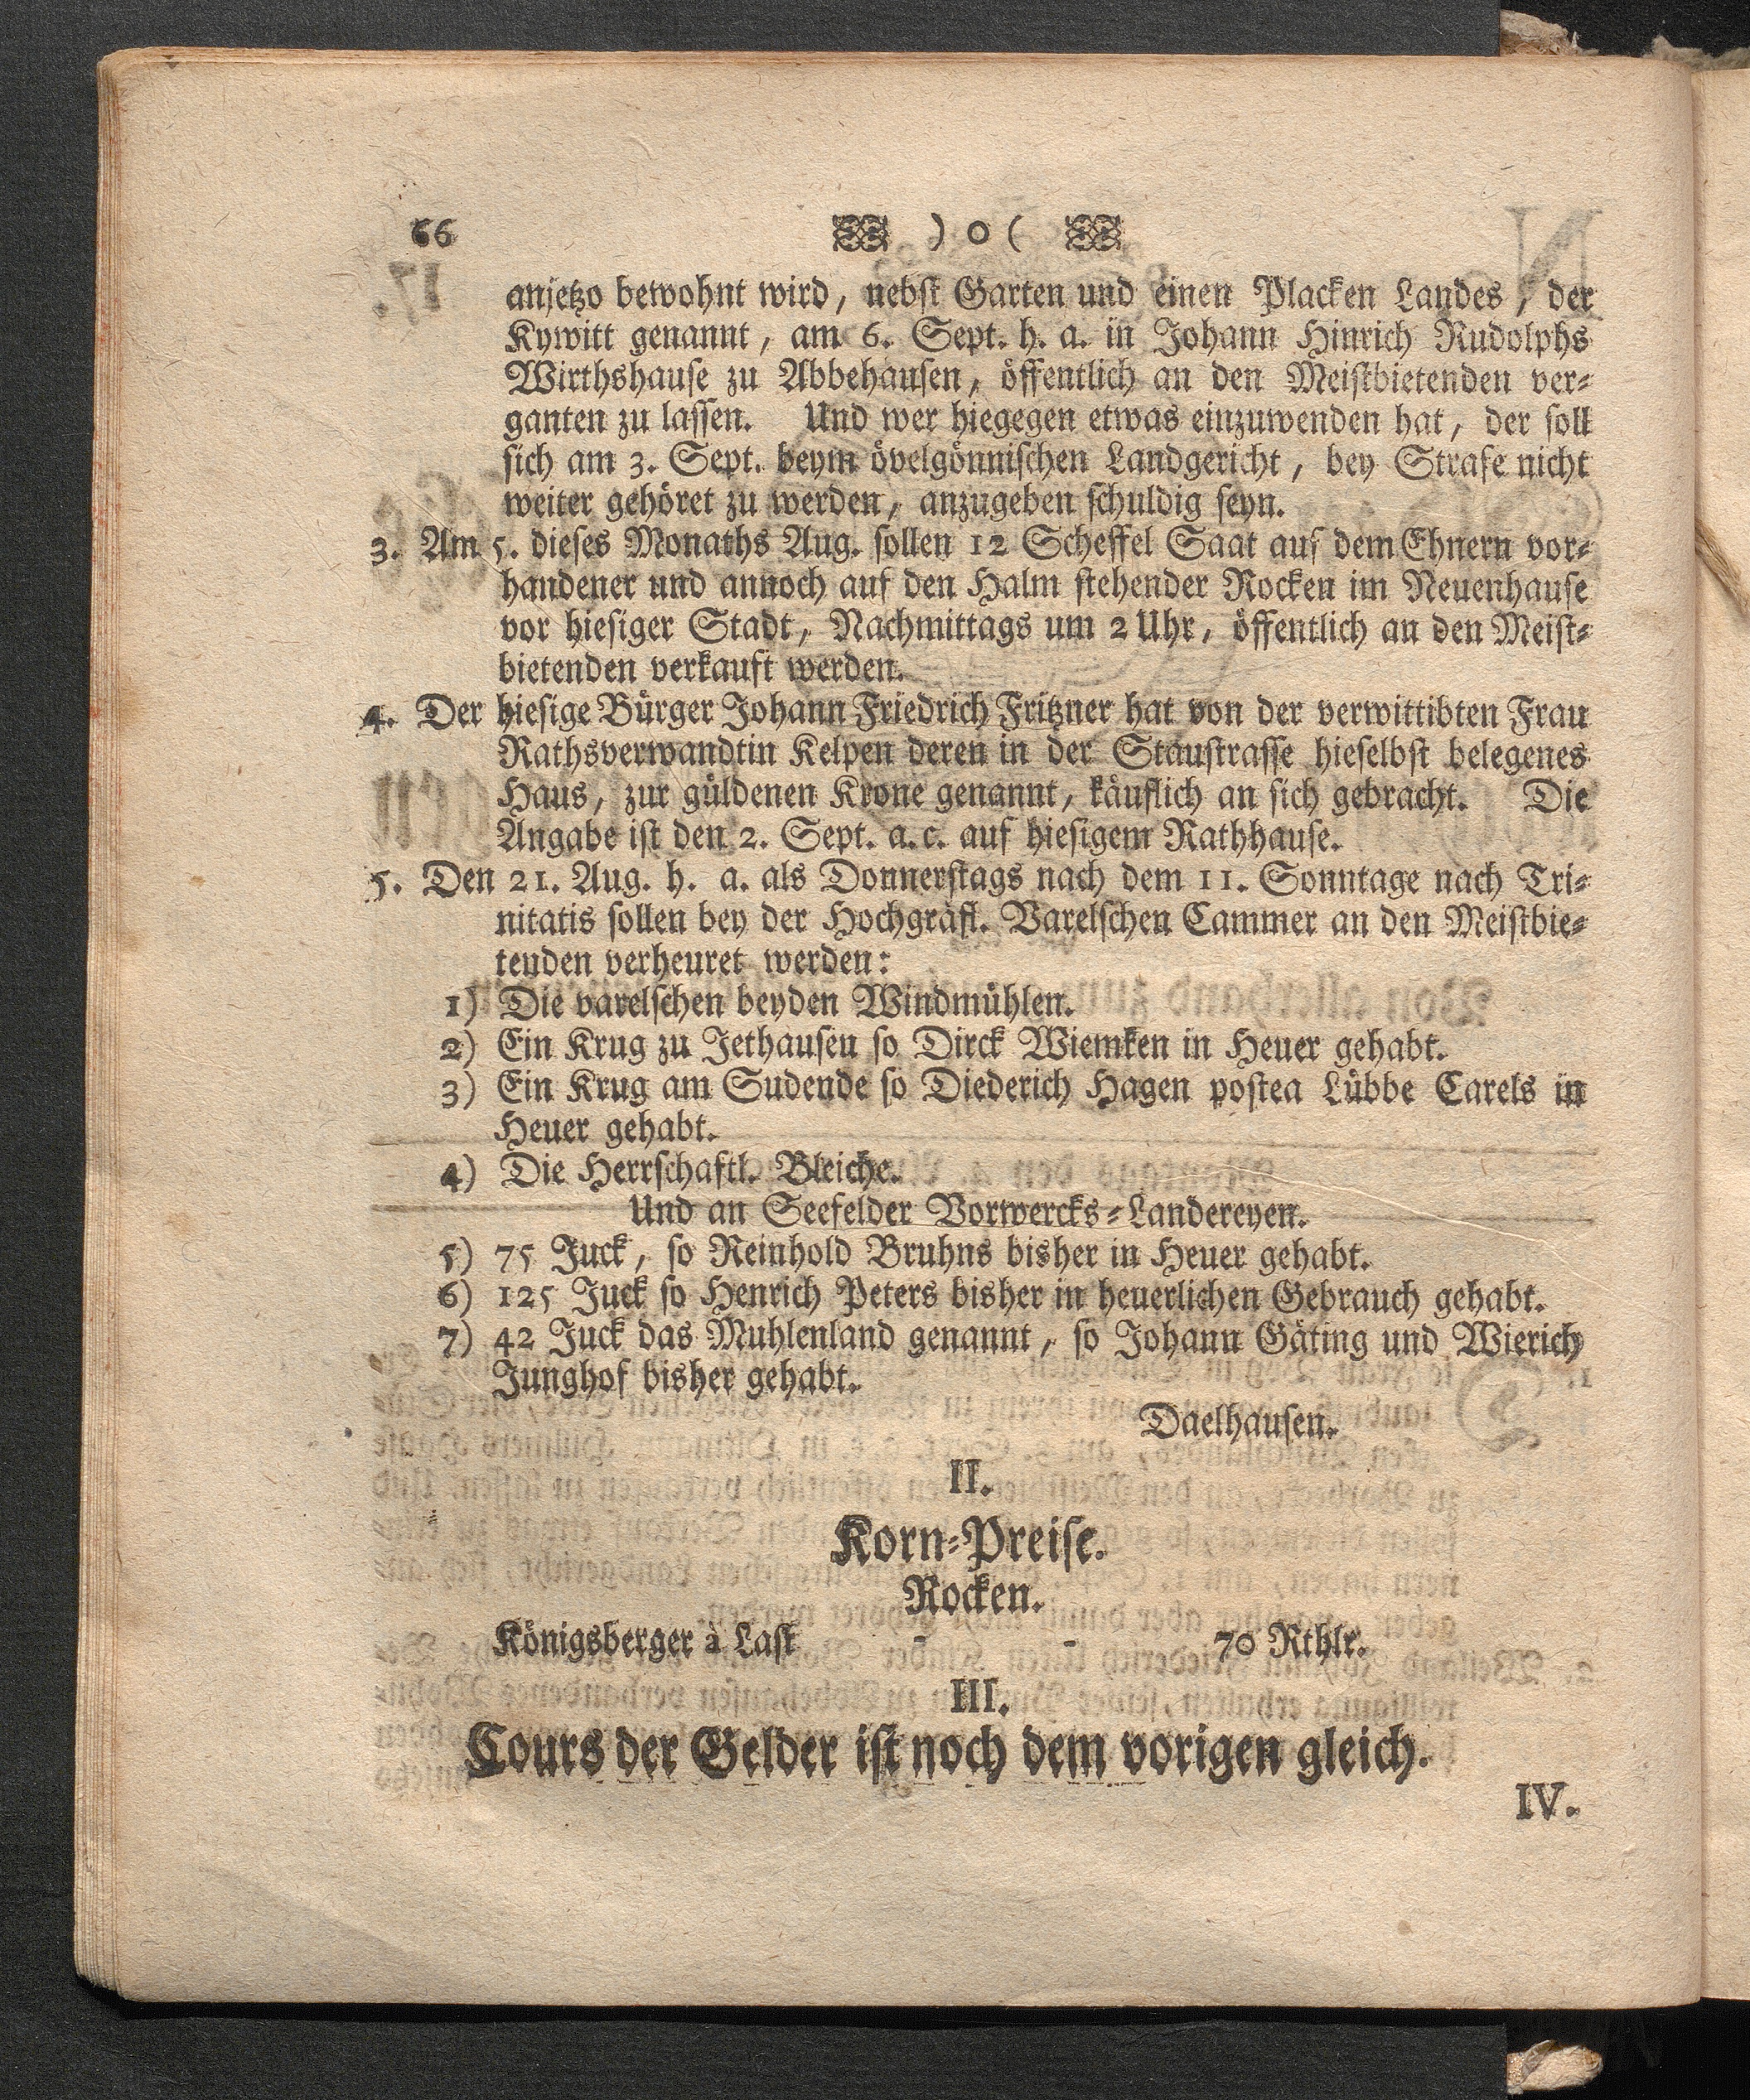 66 ) o (
anjetzo bewohnt wird, nebst Garten und einen Placken Landes, der
Kywitt genannt, am 6. Sept. h. a. in Johann Hinrich Rudolphs
Wirthshause zu Abbehausen, öffentlich an den Meistbietenden ver-
ganten zu lassen. Und wer hiegegen etwas einzuwenden hat, der soll
sich am 3. Sept. beym övelgönnischen Landgericht, bey Strafe nicht
weiter gehöret zu werden, anzugeben schuldig seyn.
3. Am 5. dieses Monaths Aug. sollen 12 Scheffel Saat auf dem Ehnern vor-
handener und annoch auf den Halm stehender Rocken im Neuenhause
vor hiesiger Stadt, Nachmittags um 2 Uhr, öffentlich an den Meist-
bietenden verkauft werden.
4. Der hiesige Bürger Johann Friedrich Fritzner hat von der verwittibten Frau
Rathsverwandtin Kelpen deren in der Staustrasse hieselbst belegenes
Haus, zur güldenen Krone genannt, käuflich an sich gebracht. Die
Angabe ist den 2. Sept. a. c. auf hiesigem Rathhause.
5. Den 21. Aug. h. a. als Donnerstags nach dem 11. Sonntage nach Tri-
nitatis sollen bey der Hochgräfl. Varelschen Cammer an den Meistbie-
tenden verheuret werden:
1) Die varelschen beyden Windmühlen.
2) Ein Krug zu Jethausen so Dirck Wiemken in Heuer gehabt.
3) Ein Krug am Sudende so Diederich Hagen postea Lübbe Carels in
Heuer gehabt.
4) Die Herrschaftl. Bleiche.
Und an Seefelder Vorwercks-Landereyen.
5) 75 Juck, so Reinhold Bruhns bisher in Heuer gehabt.
6) 125 Juck so Henrich Peters bisher in heuerlichen Gebrauch gehabt.
7) 42 Juck das Muhlenland genannt, so Johann Gäting und Wierich
Junghof bisher gehabt.
Daelhausen.
II.
Korn-Preise.
Rocken.
Königsberger à Last - - 70 Rthlr.
III.
Cours der Gelder ist noch dem vorigen gleich.
IV.